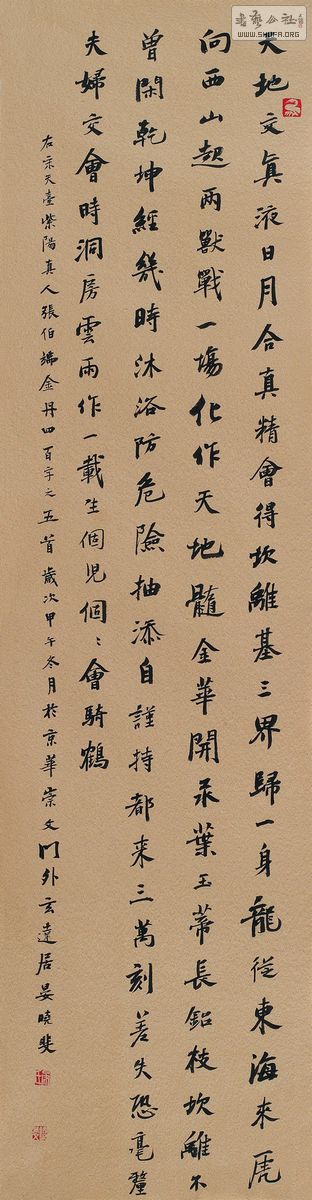 書藝公社
WWW.SHUFA.ORG
天地交眞液日月合真精會得坎離基三界歸一身龍從東海來虎
向西山起兩獸戰一塲化作天地髓金華開汞葉玉蒂長鉛枝坎離不
曾閑乾坤經幾時沐浴防危險抽添自謹持都来三萬刻差失恐毫釐
夫婦交會時洞房雲雨作一載生個兒個〻會騎鶴
右宋天臺紫陽真人張伯端金丹四百字之五首歲次甲午冬月於京華崇文門外玄遠居晏曉斐